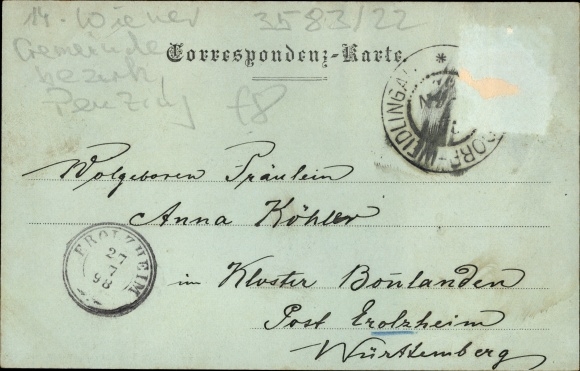 14. Wiener
Gemeinde
bezirk
Penzing
3583/22
f8
Correspondenz-Karte.
Wolgeboren Fräulein
Anna Köhler
im Kloster Bonlanden
Post Erolzheim
Württemberg
EROLZHEIM
27
7
98